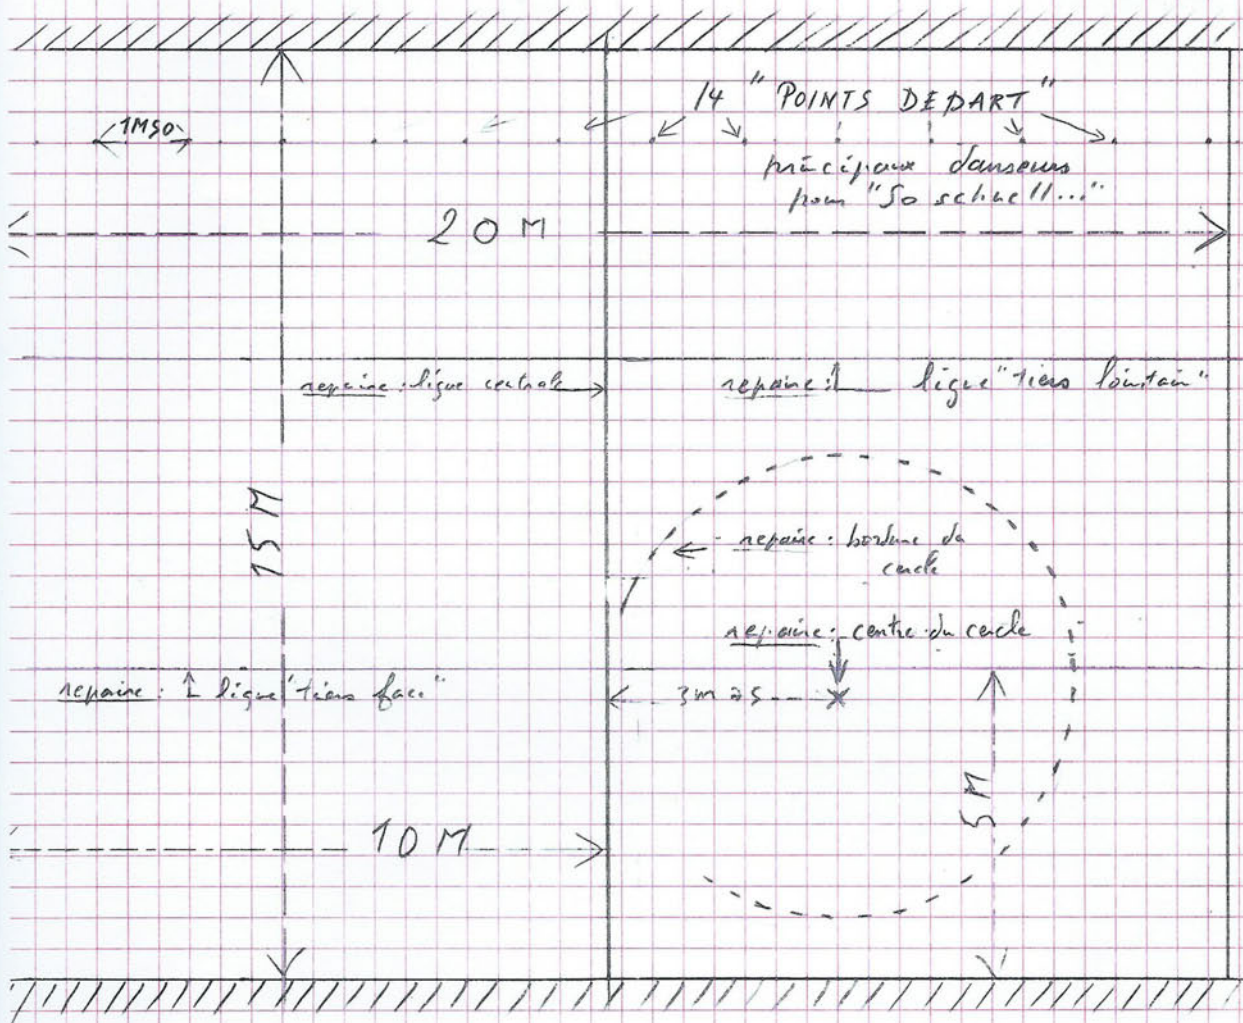 14 "POINTS DEPART"
1M50
principaux danseurs
pour "So schnell..."
20 M
repaire : ligne centrale
repaire : ligne "tiers lointain"
15 M
repaire : bordure du
cercle
repaire : centre du cercle
repaire : ligne "tiers face"
3m75
5M
10 M